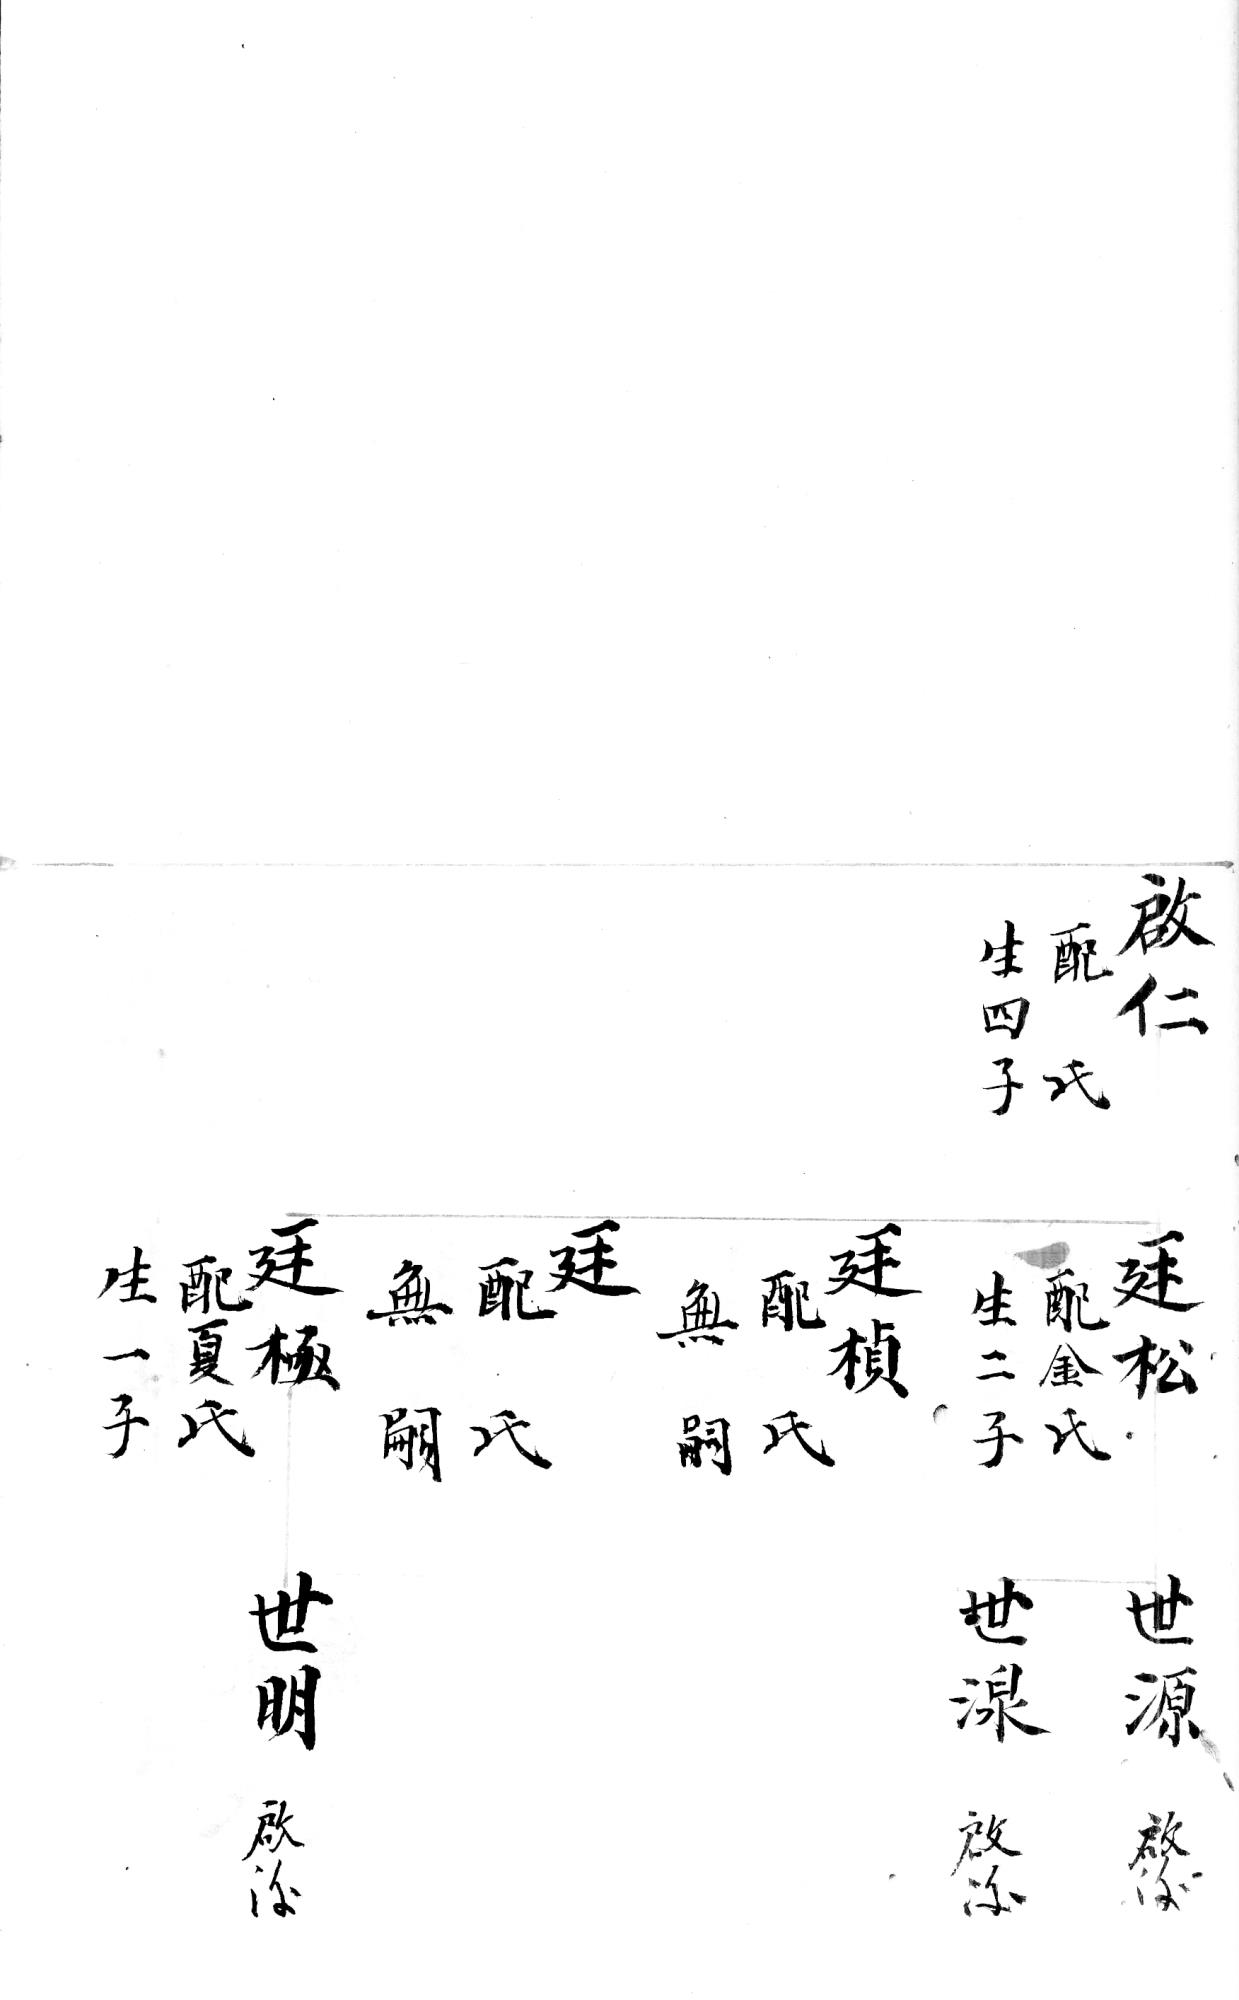 啟仁
配 氏
生四子
廷松
配金氏
生二子
廷楨
配 氏
無嗣
廷
配 氏
無嗣
廷極
配夏氏
生一子
世源
啟後
世湶
啟後
世明
啟後